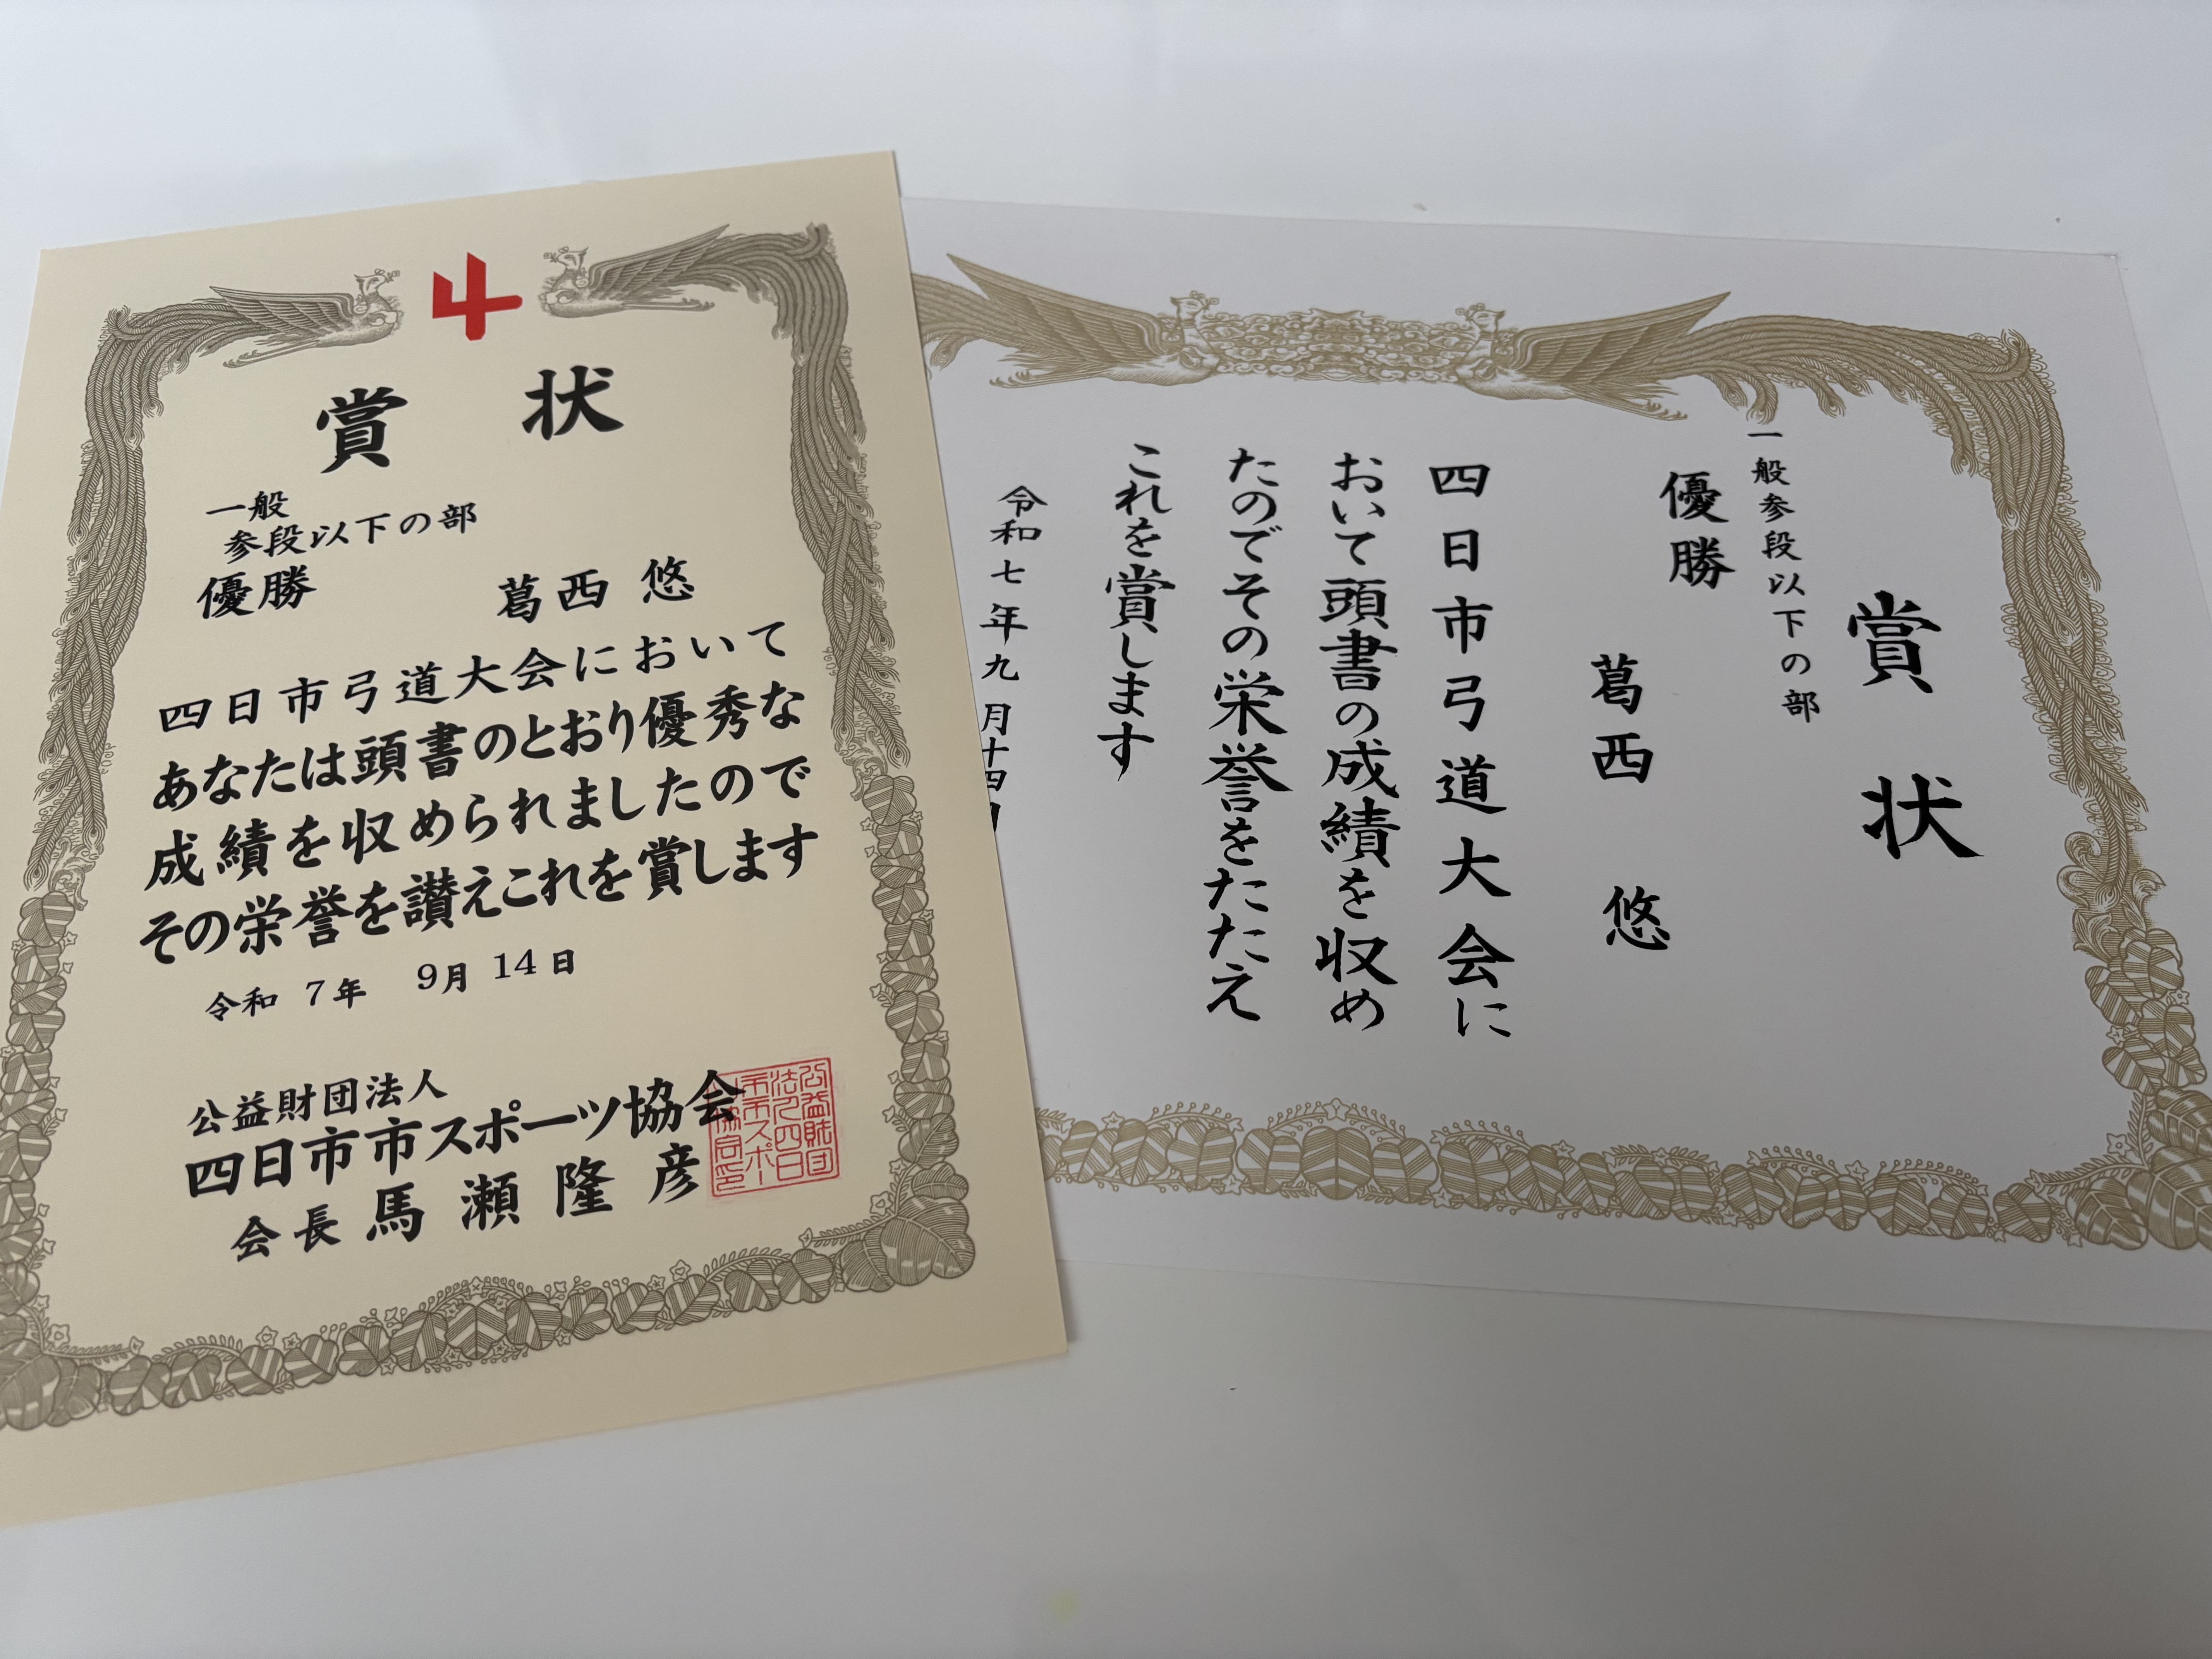 賞状
一般
参段以下の部
優勝 葛西 悠
四日市弓道大会において
あなたは頭書のとおり優秀な
成績を収められましたので
その栄誉を讃えこれを賞します
令和 7年 9月 14日
公益財団法人
四日市市スポーツ協会
会長 馬瀬隆彦
賞状
一般参段以下の部
優勝
葛西 悠
四日市弓道大会に
おいて頭書の成績を収め
たのでその栄誉をたたえ
これを賞します
令和七年九月十四日